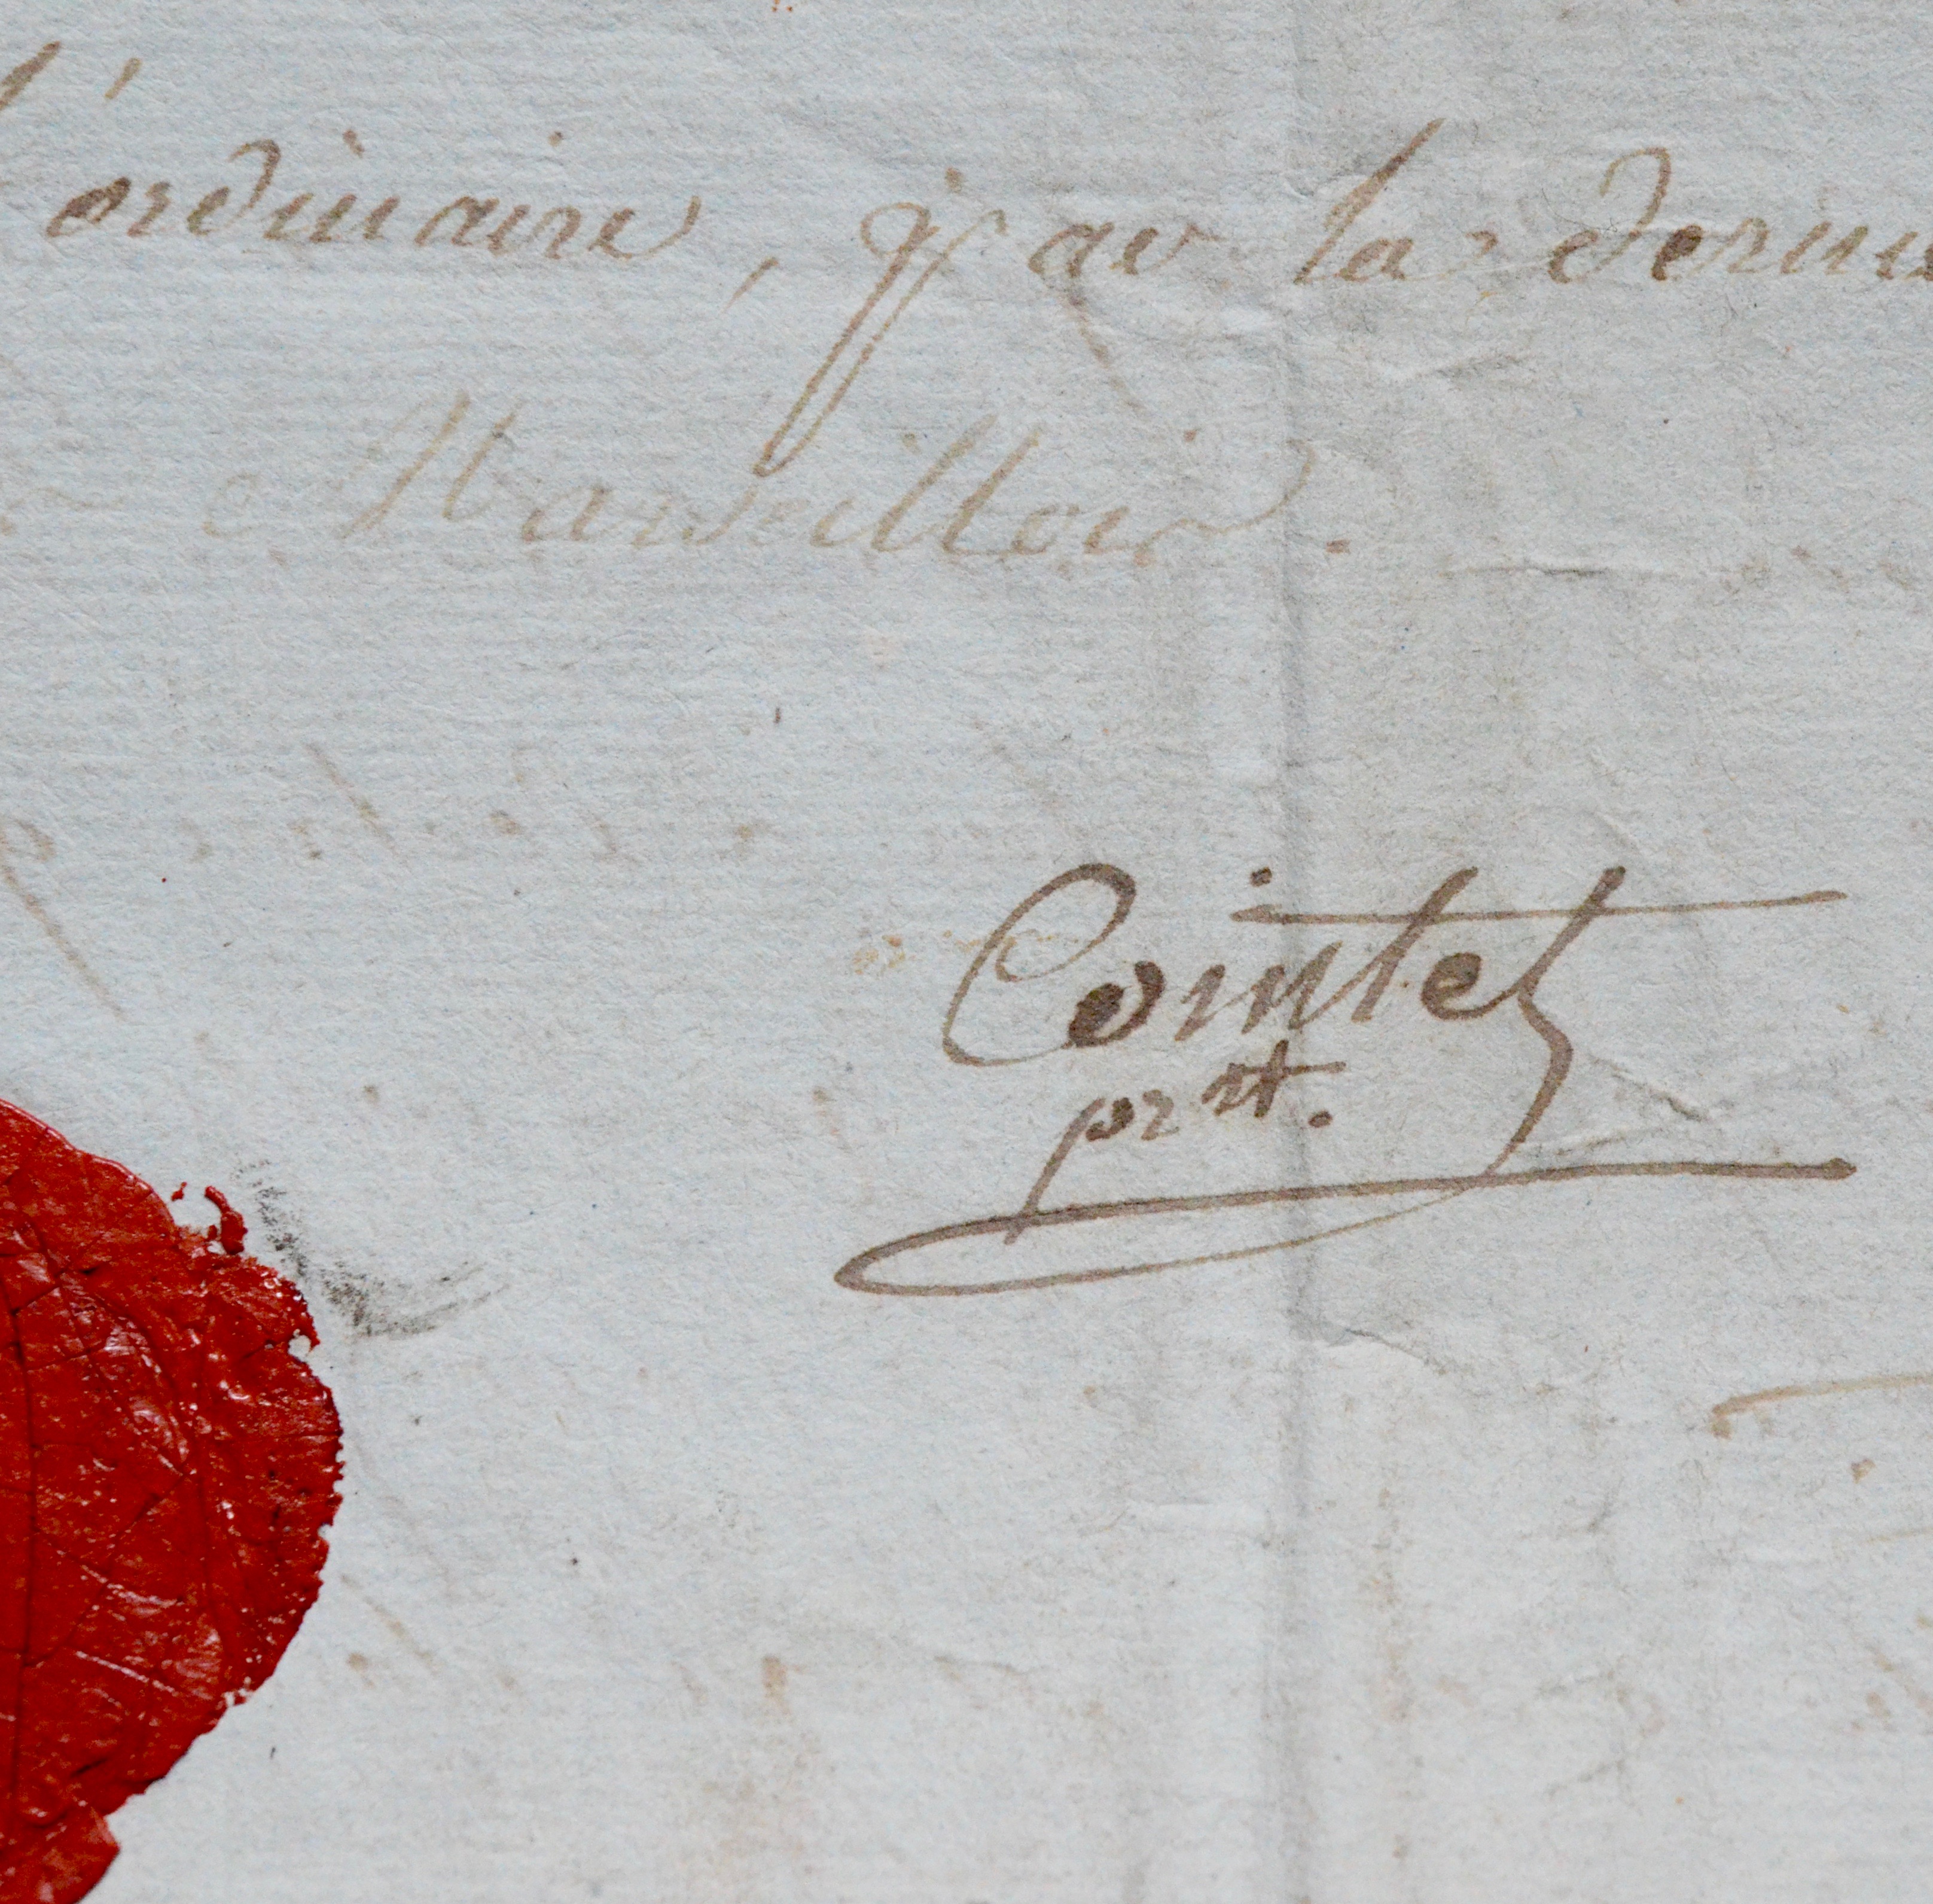 ordinaire, que la derni
Marseillois.
Cointet
prnt.